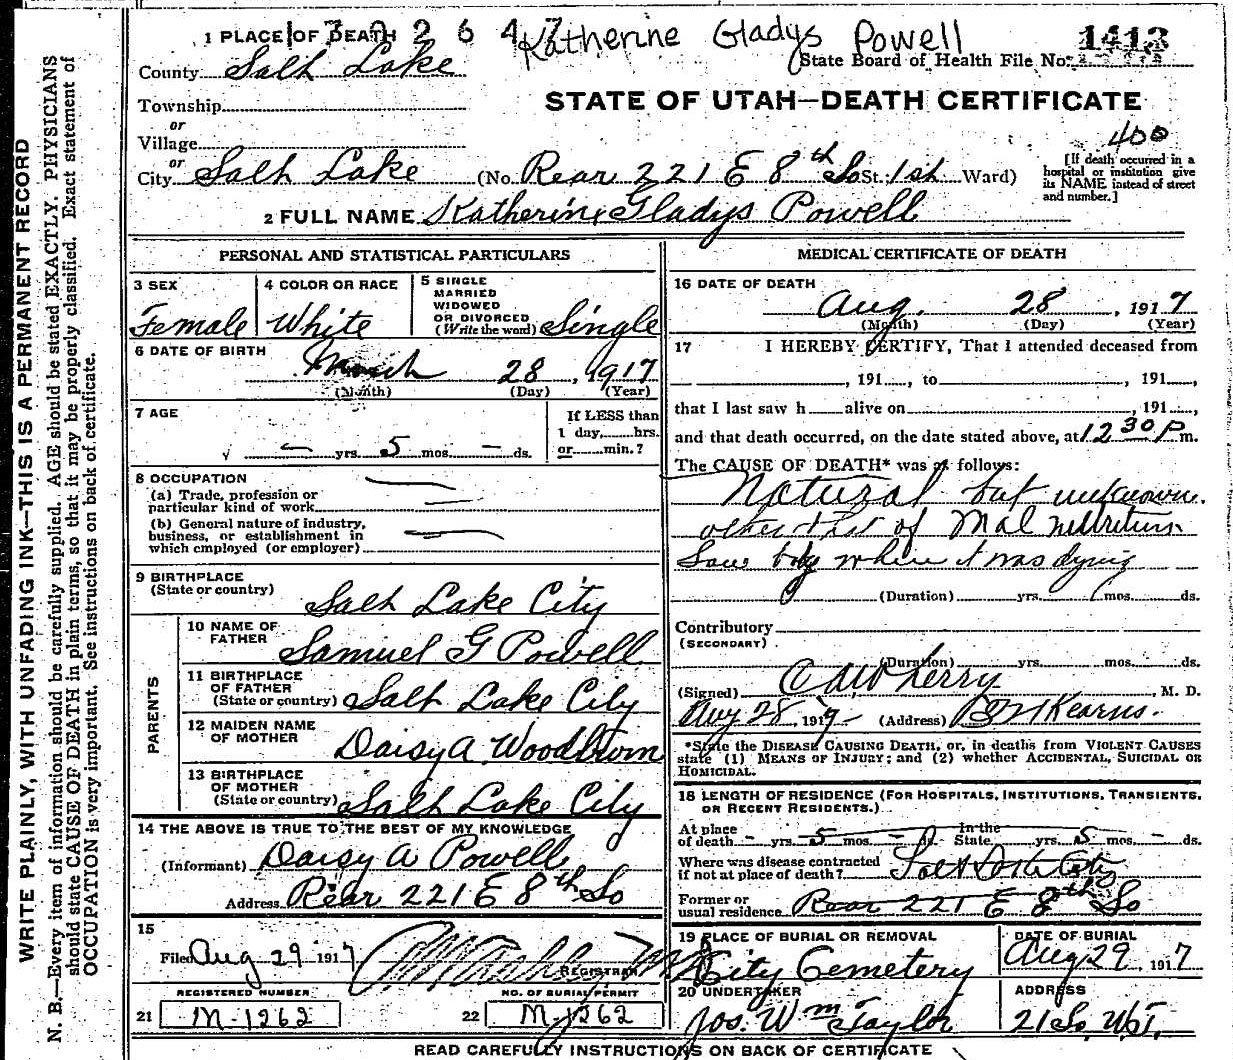 1 PLACE OF DEATH 2 6 4 7 Katherine Gladys Powell 1413
County Salt Lake State Board of Health File No.
Township
STATE OF UTAH—DEATH CERTIFICATE
or
Village
400
or
City Salt Lake (No. Rear 221 E 8th So St. 1st Ward)
[If death occurred in a hospital or institution give its NAME instead of street and number.]
2 FULL NAME Katherine Gladys Powell
PERSONAL AND STATISTICAL PARTICULARS
3 SEX Female
4 COLOR OR RACE White
5 SINGLE MARRIED WIDOWED OR DIVORCED (Write the word) Single
6 DATE OF BIRTH
March 28, 1917
(Month) (Day) (Year)
7 AGE
— yrs. 5 mos. — ds.
If LESS than
1 day, hrs.
or min.?
8 OCCUPATION
(a) Trade, profession or
particular kind of work
(b) General nature of industry,
business, or establishment in
which employed (or employer)
9 BIRTHPLACE
(State or country) Salt Lake City
PARENTS
10 NAME OF
FATHER Samuel G Powell
11 BIRTHPLACE
OF FATHER
(State or country) Salt Lake City
12 MAIDEN NAME
OF MOTHER Daisy A. Woodburn
13 BIRTHPLACE
OF MOTHER
(State or country) Salt Lake City
14 THE ABOVE IS TRUE TO THE BEST OF MY KNOWLEDGE
(Informant) Daisy A Powell
Address Rear 221 E 8th So
15
Filed Aug 29 1917
REGISTRAR
REGISTERED NUMBER NO. OF BURIAL PERMIT
21 M-1262 22 M-1262
MEDICAL CERTIFICATE OF DEATH
16 DATE OF DEATH
Aug. 28, 1917
(Month) (Day) (Year)
17 I HEREBY CERTIFY, That I attended deceased from
, 191 , to , 191 ,
that I last saw h alive on , 191 ,
and that death occurred, on the date stated above, at 12 30 P m.
The CAUSE OF DEATH* was as follows:
Natural but unknown
other that of Mal nutrition
Saw body where it was dying
(Duration) yrs. mos. ds.
Contributory
(SECONDARY)
(Duration) yrs. mos. ds.
(Signed) , M. D.
Aug 28, 1917 (Address) Kearns.
*State the DISEASE CAUSING DEATH, or, in deaths from VIOLENT CAUSES
state (1) MEANS OF INJURY; and (2) whether ACCIDENTAL, SUICIDAL OR
HOMICIDAL.
18 LENGTH OF RESIDENCE (FOR HOSPITALS, INSTITUTIONS, TRANSIENTS,
OR RECENT RESIDENTS.)
At place In the
of death - yrs. 5 mos. - ds. State yrs. 5 mos. - ds.
Where was disease contracted
if not at place of death? Salt Lake City
Former or
usual residence Rear 221 E 8th So
19 PLACE OF BURIAL OR REMOVAL DATE OF BURIAL
City Cemetery Aug 29, 1917
20 UNDERTAKER ADDRESS
Jos. Wm Taylor 21 So. W.T.
READ CAREFULLY INSTRUCTIONS ON BACK OF CERTIFICATE
WRITE PLAINLY, WITH UNFADING INK—THIS IS A PERMANENT RECORD
N. B.—Every item of information should be carefully supplied. AGE should be stated EXACTLY. PHYSICIANS
should state CAUSE OF DEATH in plain terms, so that it may be properly classified. Exact statement of
OCCUPATION is very important. See instructions on back of certificate.